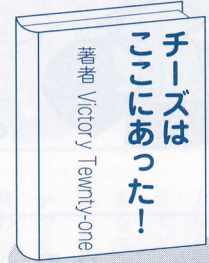 チーズは
ここにあった！
著者 Victory Tewnty-one